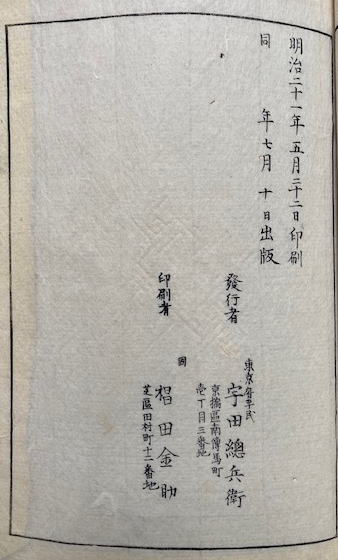 明治二十一年五月二十二日印刷
同　　年七月十日出版
發行者
東京府平民
宇田總兵衛
京橋區南傳馬町
壱丁目三番地
印刷者
同
椙田金助
芝區田村町十二番地